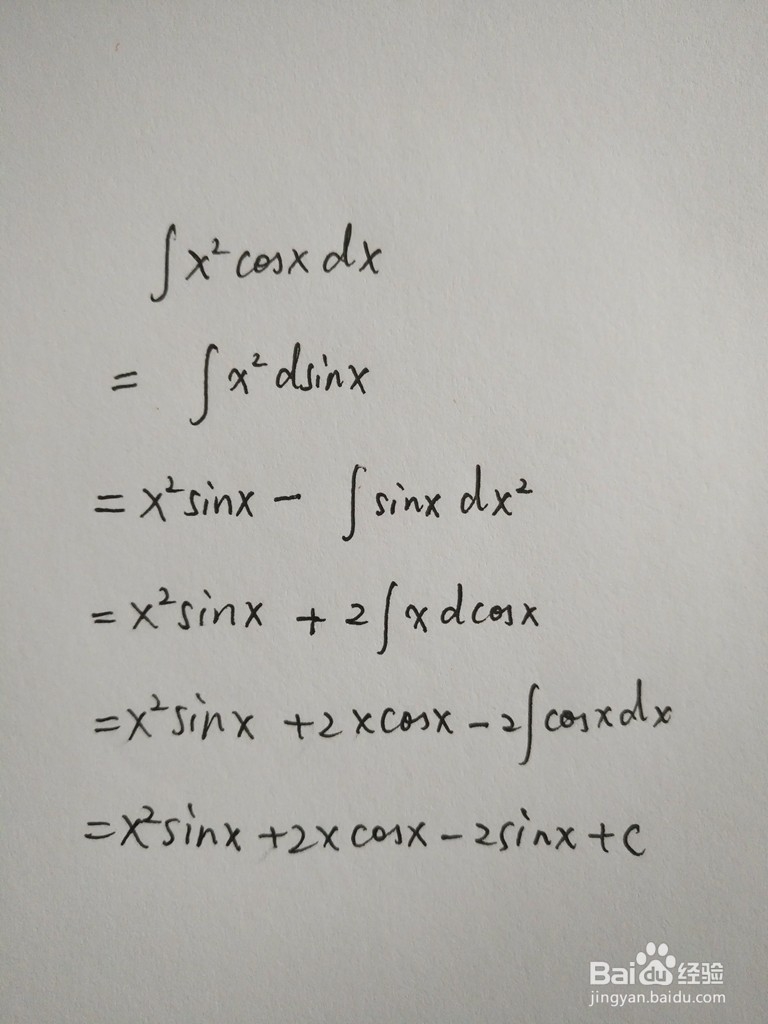 ∫x²cosx dx
= ∫x² dsinx
= x²sinx - ∫sinx dx²
= x²sinx + 2∫x dcosx
= x²sinx + 2xcosx - 2∫cosxdx
= x²sinx + 2xcosx - 2sinx + C
Bai du 经验
jingyan.baidu.com